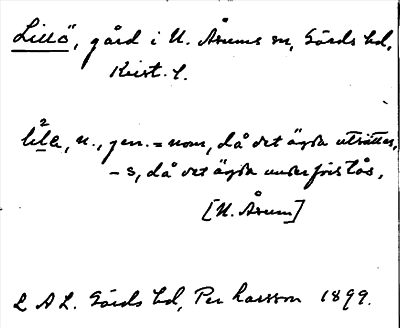 Lillö, gård i N. Åsums sn, Gärds hd,
Krist. l.
lila, n., gen. = nom, då det ägda utsättes,
-s, då det ägda underförstås.
[N. Åsum]
L A L. Gärds hd, Per Larsson 1899.